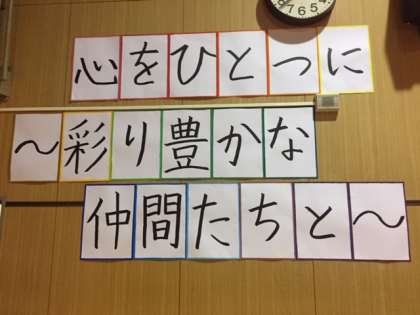 心をひとつに
～彩り豊かな
仲間たちと～